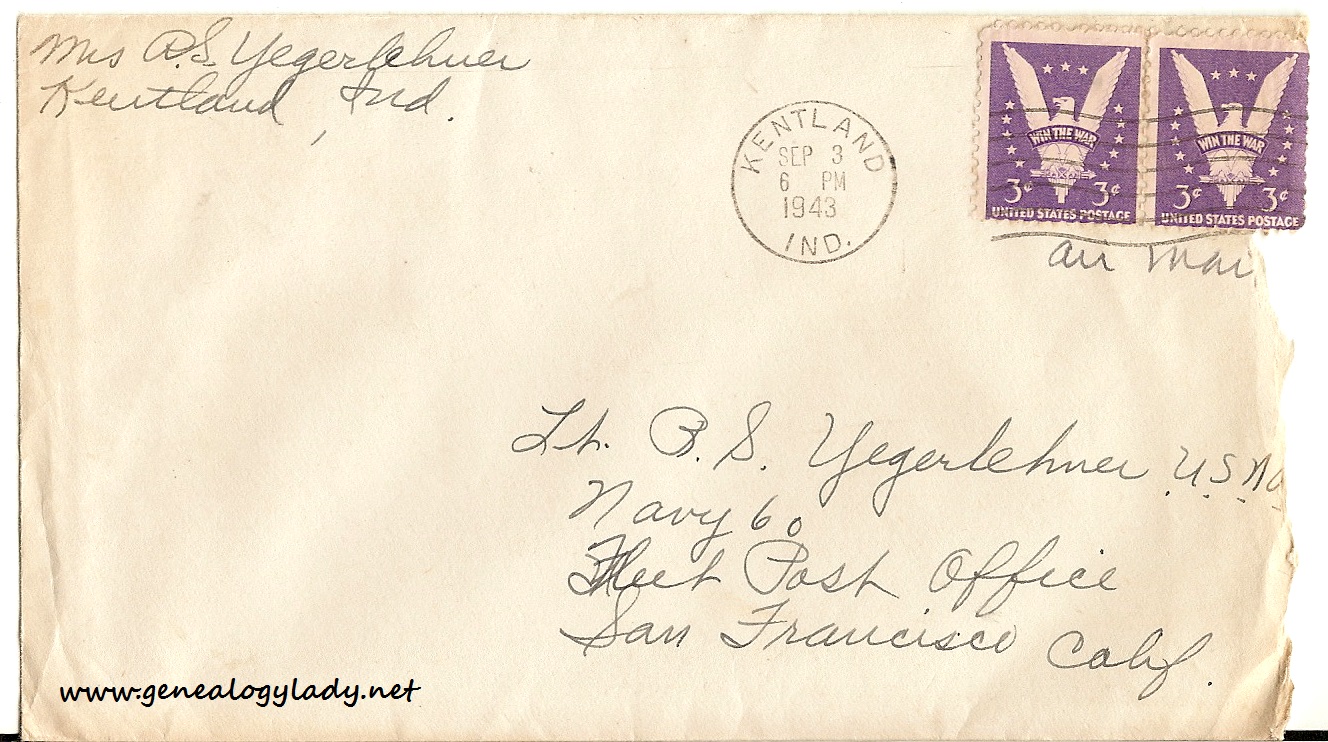 Mrs R.S. Yegerlehner
Kentland, Ind.
KENTLAND
SEP 3
6 PM
1943
IND.
WIN THE WAR
3¢ 3¢
UNITED STATES POSTAGE
WIN THE WAR
3¢ 3¢
UNITED STATES POSTAGE
air mai
Lt. R. S. Yegerlehner U.S.N.
Navy 60
Fleet Post Office
San Francisco Calif.
www.genealogylady.net